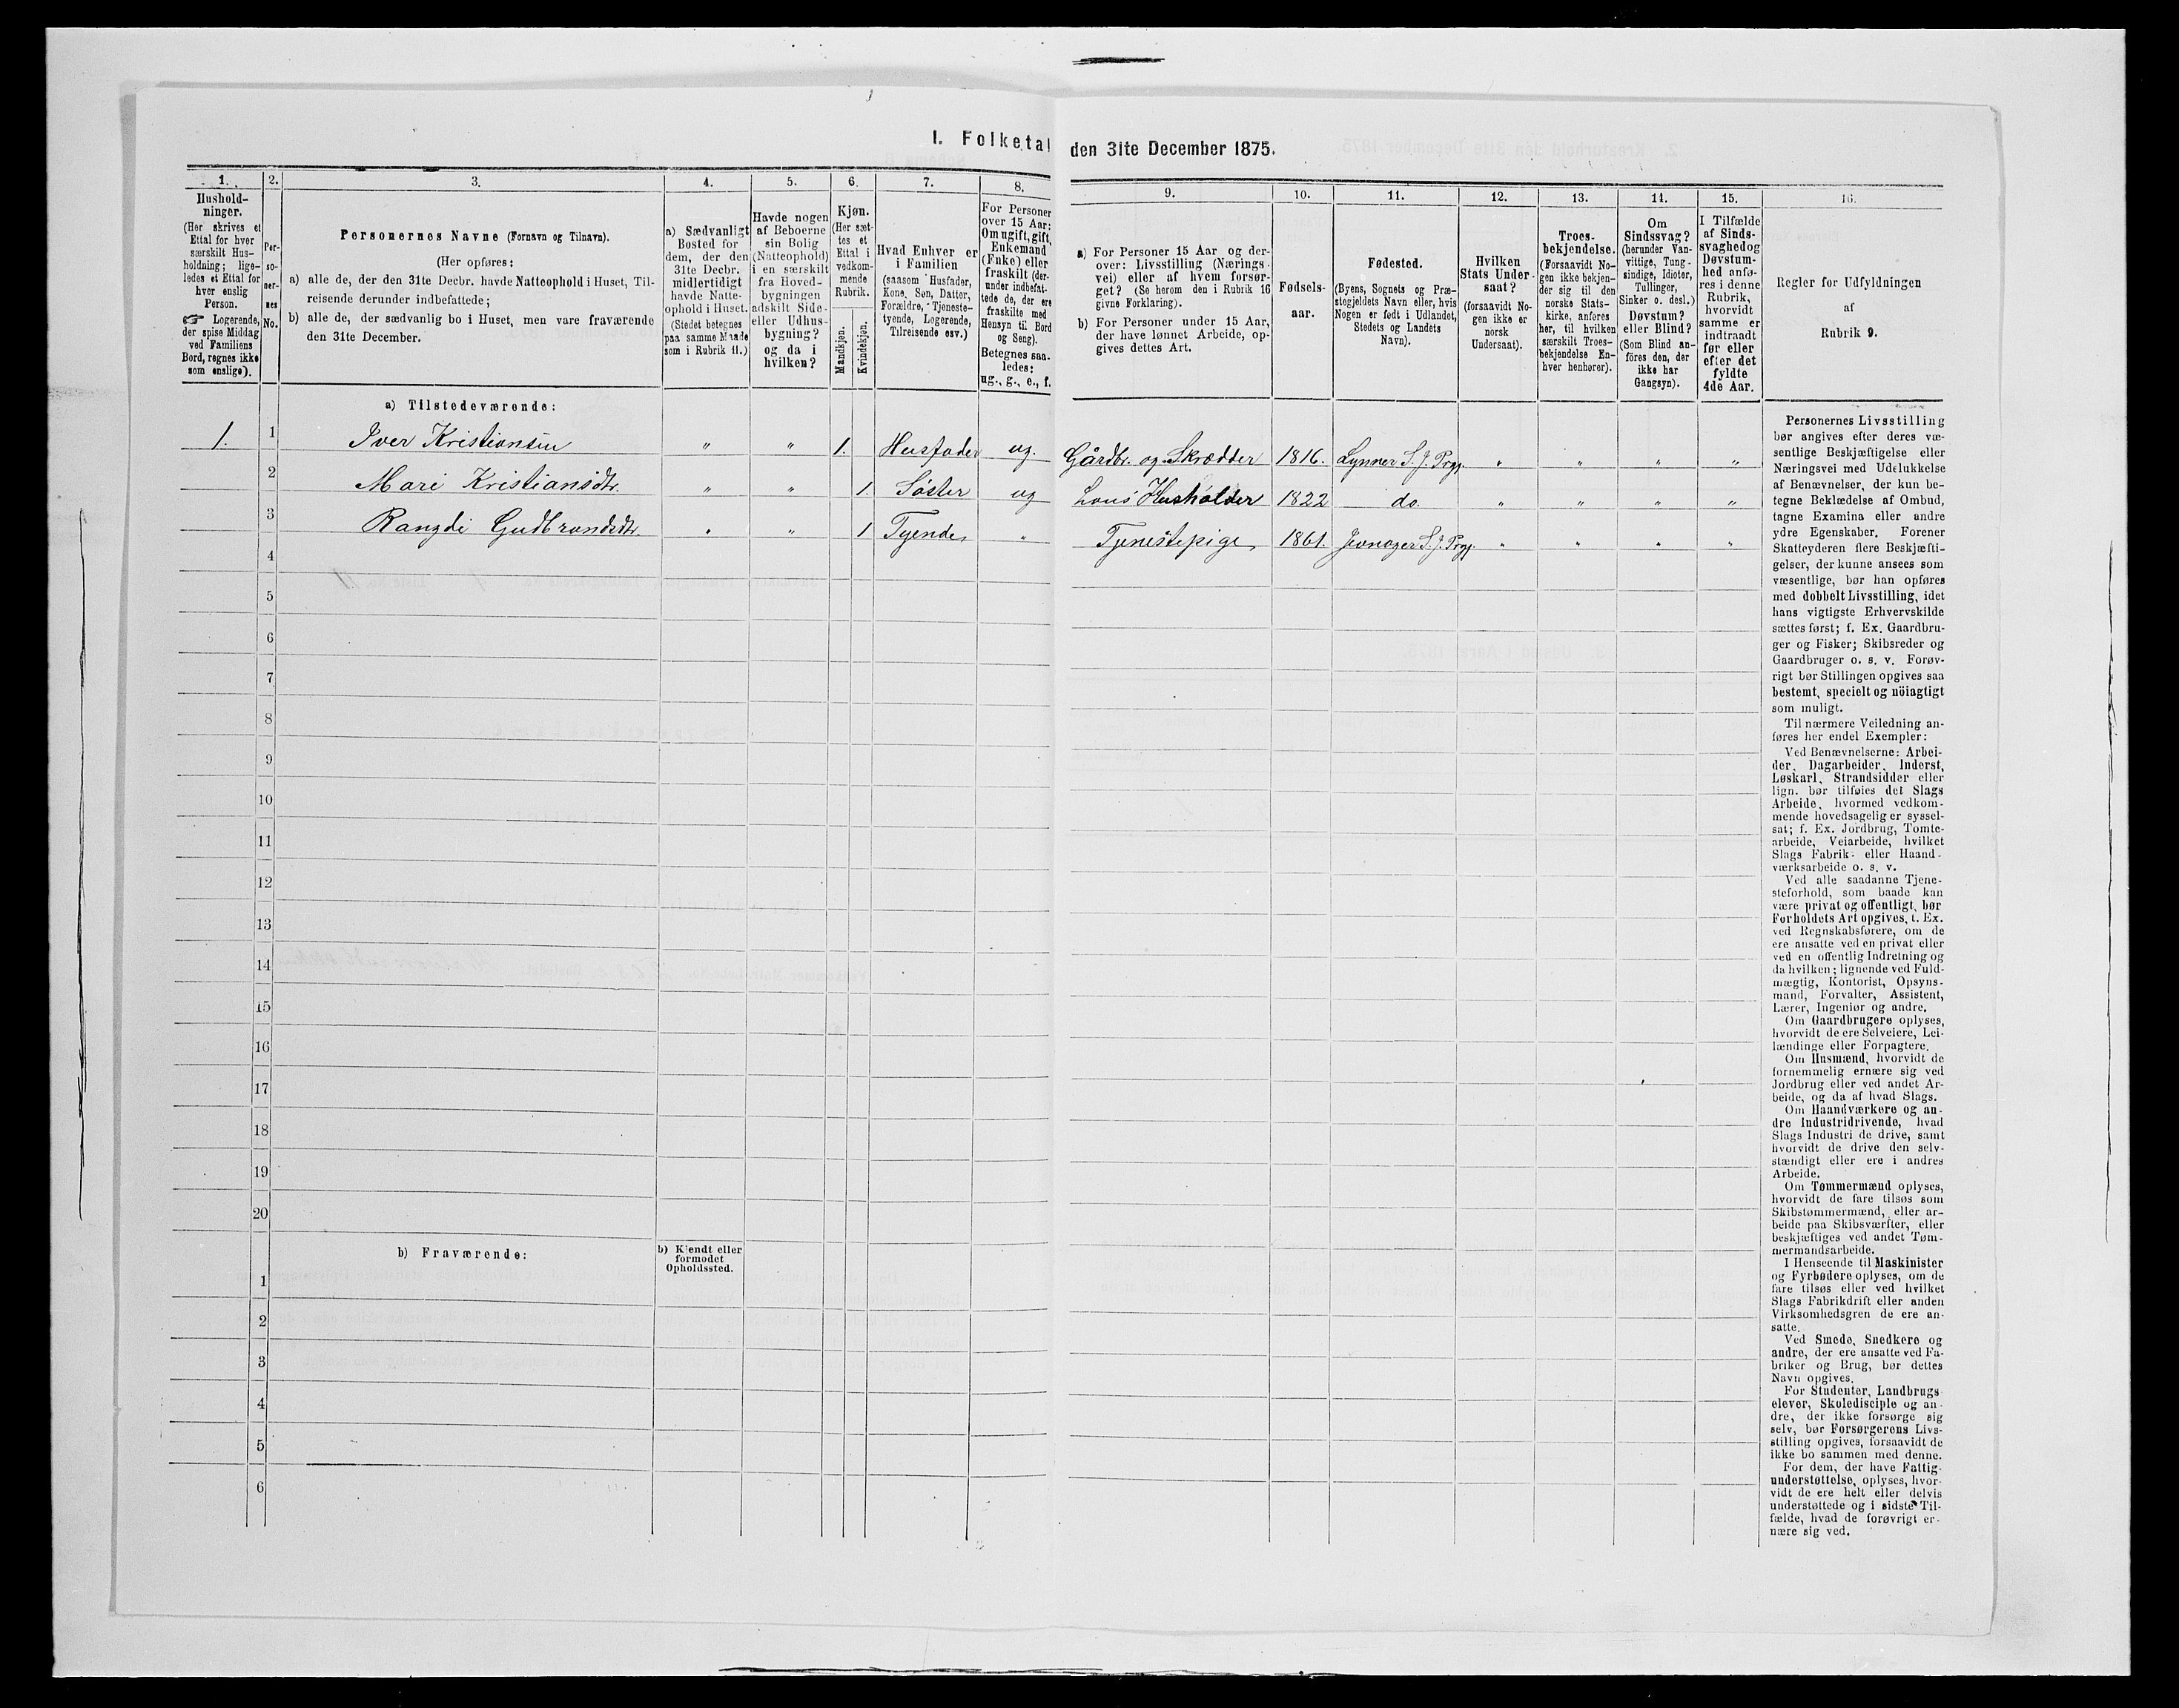 I. Folketal den 31te December 1875.
1.
Hushold-
ninger.
(Her skrives et
Ettal for hver
særskilt Hus-
holdning; lige-
ledes et Ettal for
hver enslig
Person.
☞ Logerende,
der spise Middag
ved Familiens
Bord, regnes ikke
som enslige).
2.
Per-
so-
ner-
nes
No.
3.
Personernes Navne (Fornavn og Tilnavn).
(Her opføres:
a) alle de, der den 31te Decbr. havde Natteophold i Huset, Til-
reisende derunder indbefattede;
b) alle de, der sædvanlig bo i Huset, men vare fraværende
den 31te December.
4.
a) Sædvanligt
Bosted for
dem, der den
31te Decbr.
midlertidigt
havde Natte-
ophold i Huset.
(Stedet betegnes
paa samme Maade
som i Rubrik 11.)
5.
Havde nogen
af Beboerne
sin Bolig
(Natteophold)
i en særskilt
fra Hoved-
bygningen
adskilt Side-
eller Udhus-
bygning?
og da i
hvilken?
6.
Kjøn.
(Her sæt-
tes et
Ettal i
vedkom-
mende
Rubrik.
Mandkjøn.
Kvindekjøn.
7.
Hvad Enhver er
i Familien
(saasom Husfader,
Kone, Søn, Datter,
Forældre, Tjeneste-
tyende, Logerende,
Tilreisende osv.)
8.
For Personer
over 15 Aar:
Om ugift, gift,
Enkemand
(Enke) eller
fraskilt (der-
under indbefat-
tede de, der ere
fraskilte med
Hensyn til Bord
og Seng).
Betegnes saa-
ledes:
ug., g., e., f.
9.
a) For Personer 15 Aar og der-
over: Livsstilling (Nærings-
vei) eller af hvem forsør-
get? (Se herom den i Rubrik 16
givne Forklaring).
b) For Personer under 15 Aar,
der have lønnet Arbeide, op-
gives dettes Art.
10.
Fødsels-
aar.
11.
Fødested.
(Byens, Sognets og Præ-
stegjeldets Navn eller, hvis
Nogen er født i Udlandet,
Stedets og Landets
Navn).
12.
Hvilken
Stats Under-
saat?
(forsaavidt No-
gen ikke er
norsk
Undersaat).
13.
Troes-
bekjendelse.
(Forsaavidt No-
gen ikke bekjen-
der sig til den
norske Stats-
kirke, anføres
her, til hvilken
særskilt Troes-
bekjendelse En-
hver henhører).
14.
Om
Sindssvag?
(herunder Van-
vittige, Tung-
sindige, Idioter,
Tullinger,
Sinker o. desl.)
Døvstum?
eller Blind?
(Som Blind an-
føres den, der
ikke har
Gangsyn).
15.
I Tilfælde
af Sinds-
svaghed og
Døvstum-
hed anfø-
res i denne
Rubrik,
hvorvidt
samme er
indtraadt
før eller
efter det
fyldte
4de Aar.
16.
Regler for Udfyldningen
af
Rubrik 9.
a) Tilstedeværende:
1. 1 Iver Kristiansen " " 1. Husfader ug. Gårdbr. og Skrædder 1816. Lynner S. J. Prgj. " " " "
2 Mari Kristiansdtr. " " 1. Søster ug Hans Husholder 1822 do. " " " "
3 Rangdi Gudbrandsdtr. " " 1 Tyende " Tjenestepige 1861. Jevnager S. J. Prgj. " " " "
4
5
6
7
8
9
10
11
12
13
14
15
16
17
18
19
20
b) Fraværende:
b) Kjendt eller
formodet
Opholdssted.
1
2
3
4
5
6
Personernes Livsstilling
bør angives efter deres væ-
sentlige Beskjæftigelse eller
Næringsvei med Udelukkelse
af Benævnelser, der kun be-
tegne Beklædelse af Ombud,
tagne Examina eller andre
ydre Egenskaber. Forener
Skatteyderen flere Beskjæfti-
gelser, der kunne ansees som
væsentlige, bør han opføres
med dobbelt Livsstilling, idet
hans vigtigste Erhvervskilde
sættes først; f. Ex. Gaardbru-
ger og Fisker; Skibsreder og
Gaardbruger o. s. v. Forøv-
rigt bør Stillingen opgives saa
bestemt, specielt og nöiagtigt
som muligt.
Til nærmere Veiledning an-
føres her endel Exempler:
Ved Benævnelserne: Arbei-
der, Dagarbeider, Inderst,
Løskarl, Strandsidder eller
lign. bør tilføies det Slags
Arbeide, hvormed vedkom-
mende hovedsagelig er syssel-
sat; f. Ex. Jordbrug, Tomte-
arbeide, Veiarbeide, hvilket
Slags Fabrik- eller Haand-
værksarbeide o. s. v.
Ved alle saadanne Tjene-
steforhold, som baade kan
være privat og offentligt, bør
Forholdets Art opgives, t. Ex.
ved Regnskabsførere, om de
ere ansatte ved en privat eller
ved en offentlig Indretning og
da hvilken; lignende ved Fuld-
mægtig, Kontorist, Opsyns-
mand, Forvalter, Assistent,
Lærer, Ingeniør og andre.
Om Gaardbrugere oplyses,
hvorvidt de ere Selveiere, Lei-
lændinge eller Forpagtere.
Om Husmænd, hvorvidt de
fornemmelig ernære sig ved
Jordbrug eller ved andet Ar-
beide, og da af hvad Slags.
Om Haandværkere og an-
dre Industridrivende, hvad
Slags Industri de drive, samt
hvorvidt de drive den selv-
stændigt eller ere i andres
Arbeide.
Om Tømmermænd oplyses,
hvorvidt de fare tilsøs som
Skibstømmermænd, eller ar-
beide paa Skibsværfter, eller
beskjæftiges ved andet Tøm-
mermandsarbeide.
I Henseende til Maskinister
og Fyrbødere oplyses, om de
fare tilsøs eller ved hvilket
Slags Fabrikdrift eller anden
Virksomhedsgren de ere an-
satte.
Ved Smede, Snedkere og
andre, der ere ansatte ved Fa-
briker og Brug, bør dettes
Navn opgives.
For Studenter, Landbrugs-
elever, Skoledisciple og an-
dre, der ikke forsørge sig
selv, bør Forsørgerens Livs-
stilling opgives, forsaavidt de
ikke bo sammen med denne.
For dem, der have Fattig-
understøttelse, oplyses, hvor-
vidt de ere helt eller delvis
understøttede og i sidste Til-
fælde, hvad de forøvrigt er-
nære sig ved.